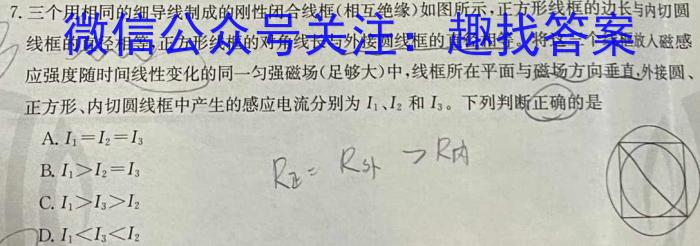 7. 三个用相同的细导线制成的刚性闭合线框(相互绝缘)如图所示,正方形线框的边长与内切圆
线框的直径相等,正方形线框的对角线长与外接圆线框的直径相等。将这三个线框放入磁感
微信公众号关注：趣找答案
应强度随时间线性变化的同一匀强磁场(足够大)中,线框所在平面与磁场方向垂直,外接圆、
正方形、内切圆线框中产生的感应电流分别为 I₁、I₂ 和 I₃。下列判断正确的是
A. I₁=I₂=I₃
B. I₁>I₂=I₃
C. I₁>I₃>I₂
D. I₁<I₃<I₂
R正= R外 > R内